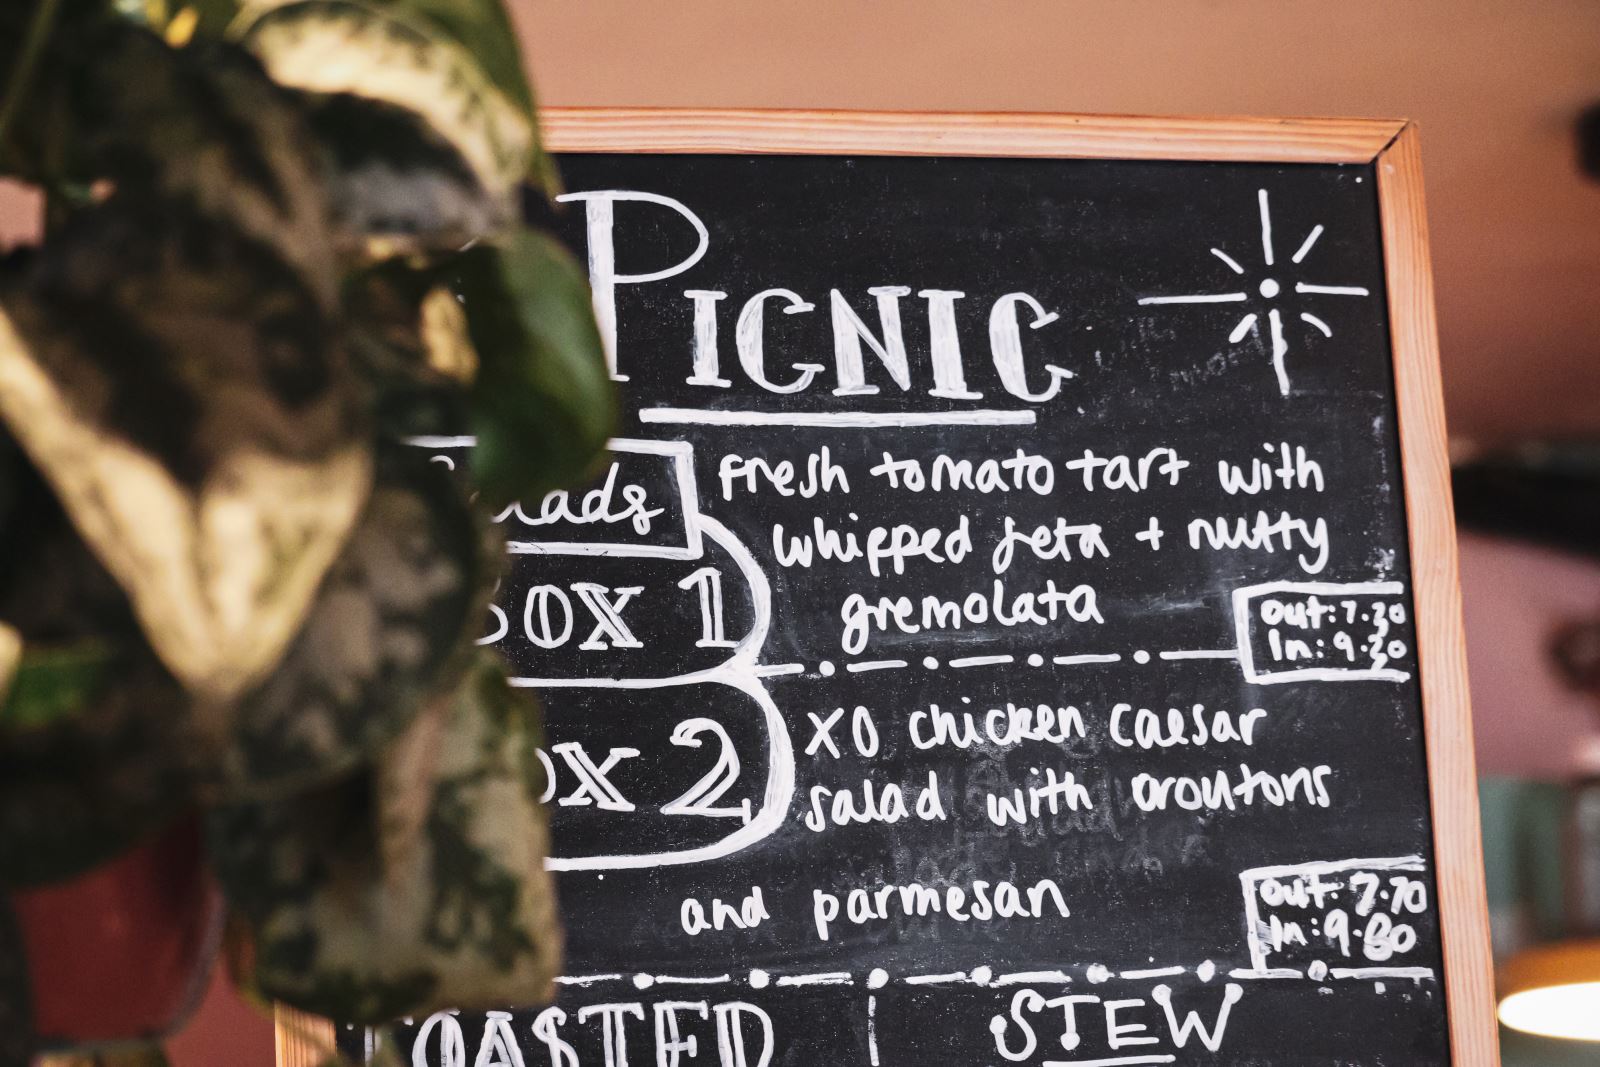 PICNIC
fresh tomato tart with
whipped feta + nutty
gremolata
BOX 1
out: 7.20
In: 9.20
XO chicken caesar
salad with croutons
and parmesan
OX 2
out: 7.70
In: 9.80
OASTED
STEW